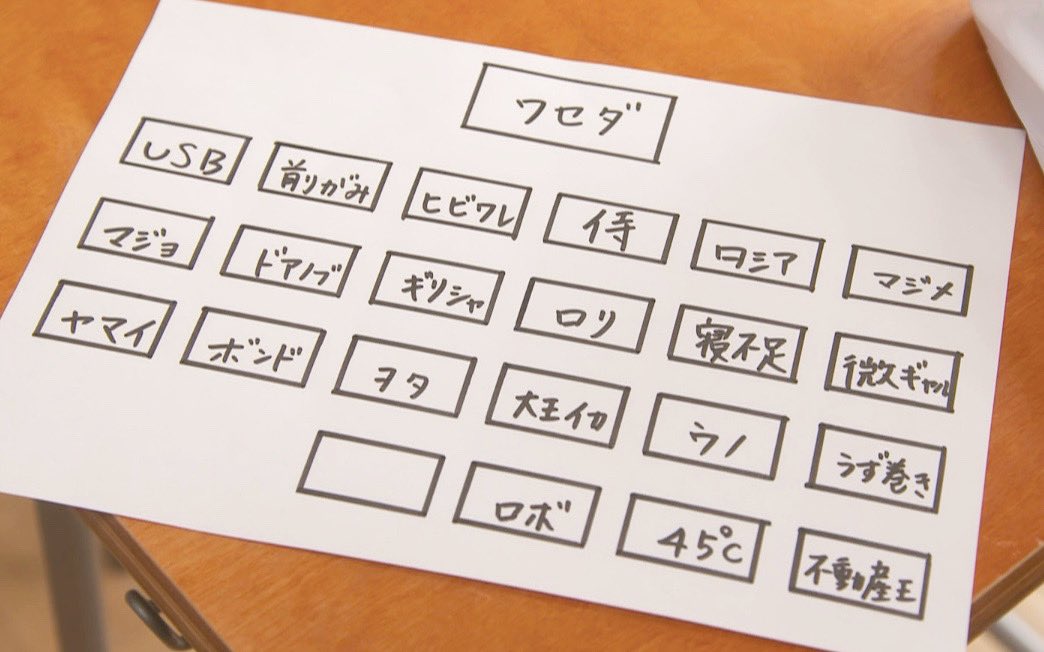 ワセダ
USB 前りがみ ヒビワレ 侍 ロシア マジメ
マジョ ドアノブ ギリシャ ロリ 寝不足 微ギャル
ヤマイ ボンド ヲタ 大王イカ ウノ うず巻き
ロボ 45℃ 不動産王